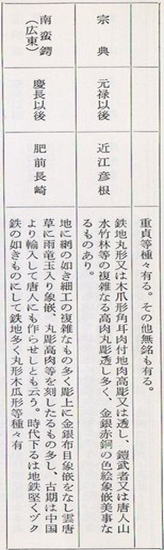 重貞等種々有る。その他無銘も有る。
宗典
元禄以後
近江彦根
鉄地丸形又は木爪形角耳肉付地肉高彫又は透し、鎧武者又は唐人山
水竹林等の複雑なる高肉丸彫透し多く、金銀赤銅の色絵象嵌美事な
るものあり。
南蛮鍔
(広東)
慶長以後
肥前長崎
地に網の如き細工の複雑なもの多く彫上に金銀布目象嵌をなし雲唐
草に雨竜玉入り象嵌、丸彫高肉等を刻したるもの多し、古期は中国
より輸入して唐人にも作らせしとも云う。時代下るは地鉄堅くヅク
鉄の如きものにして鉄地多く丸形木瓜形等種々有